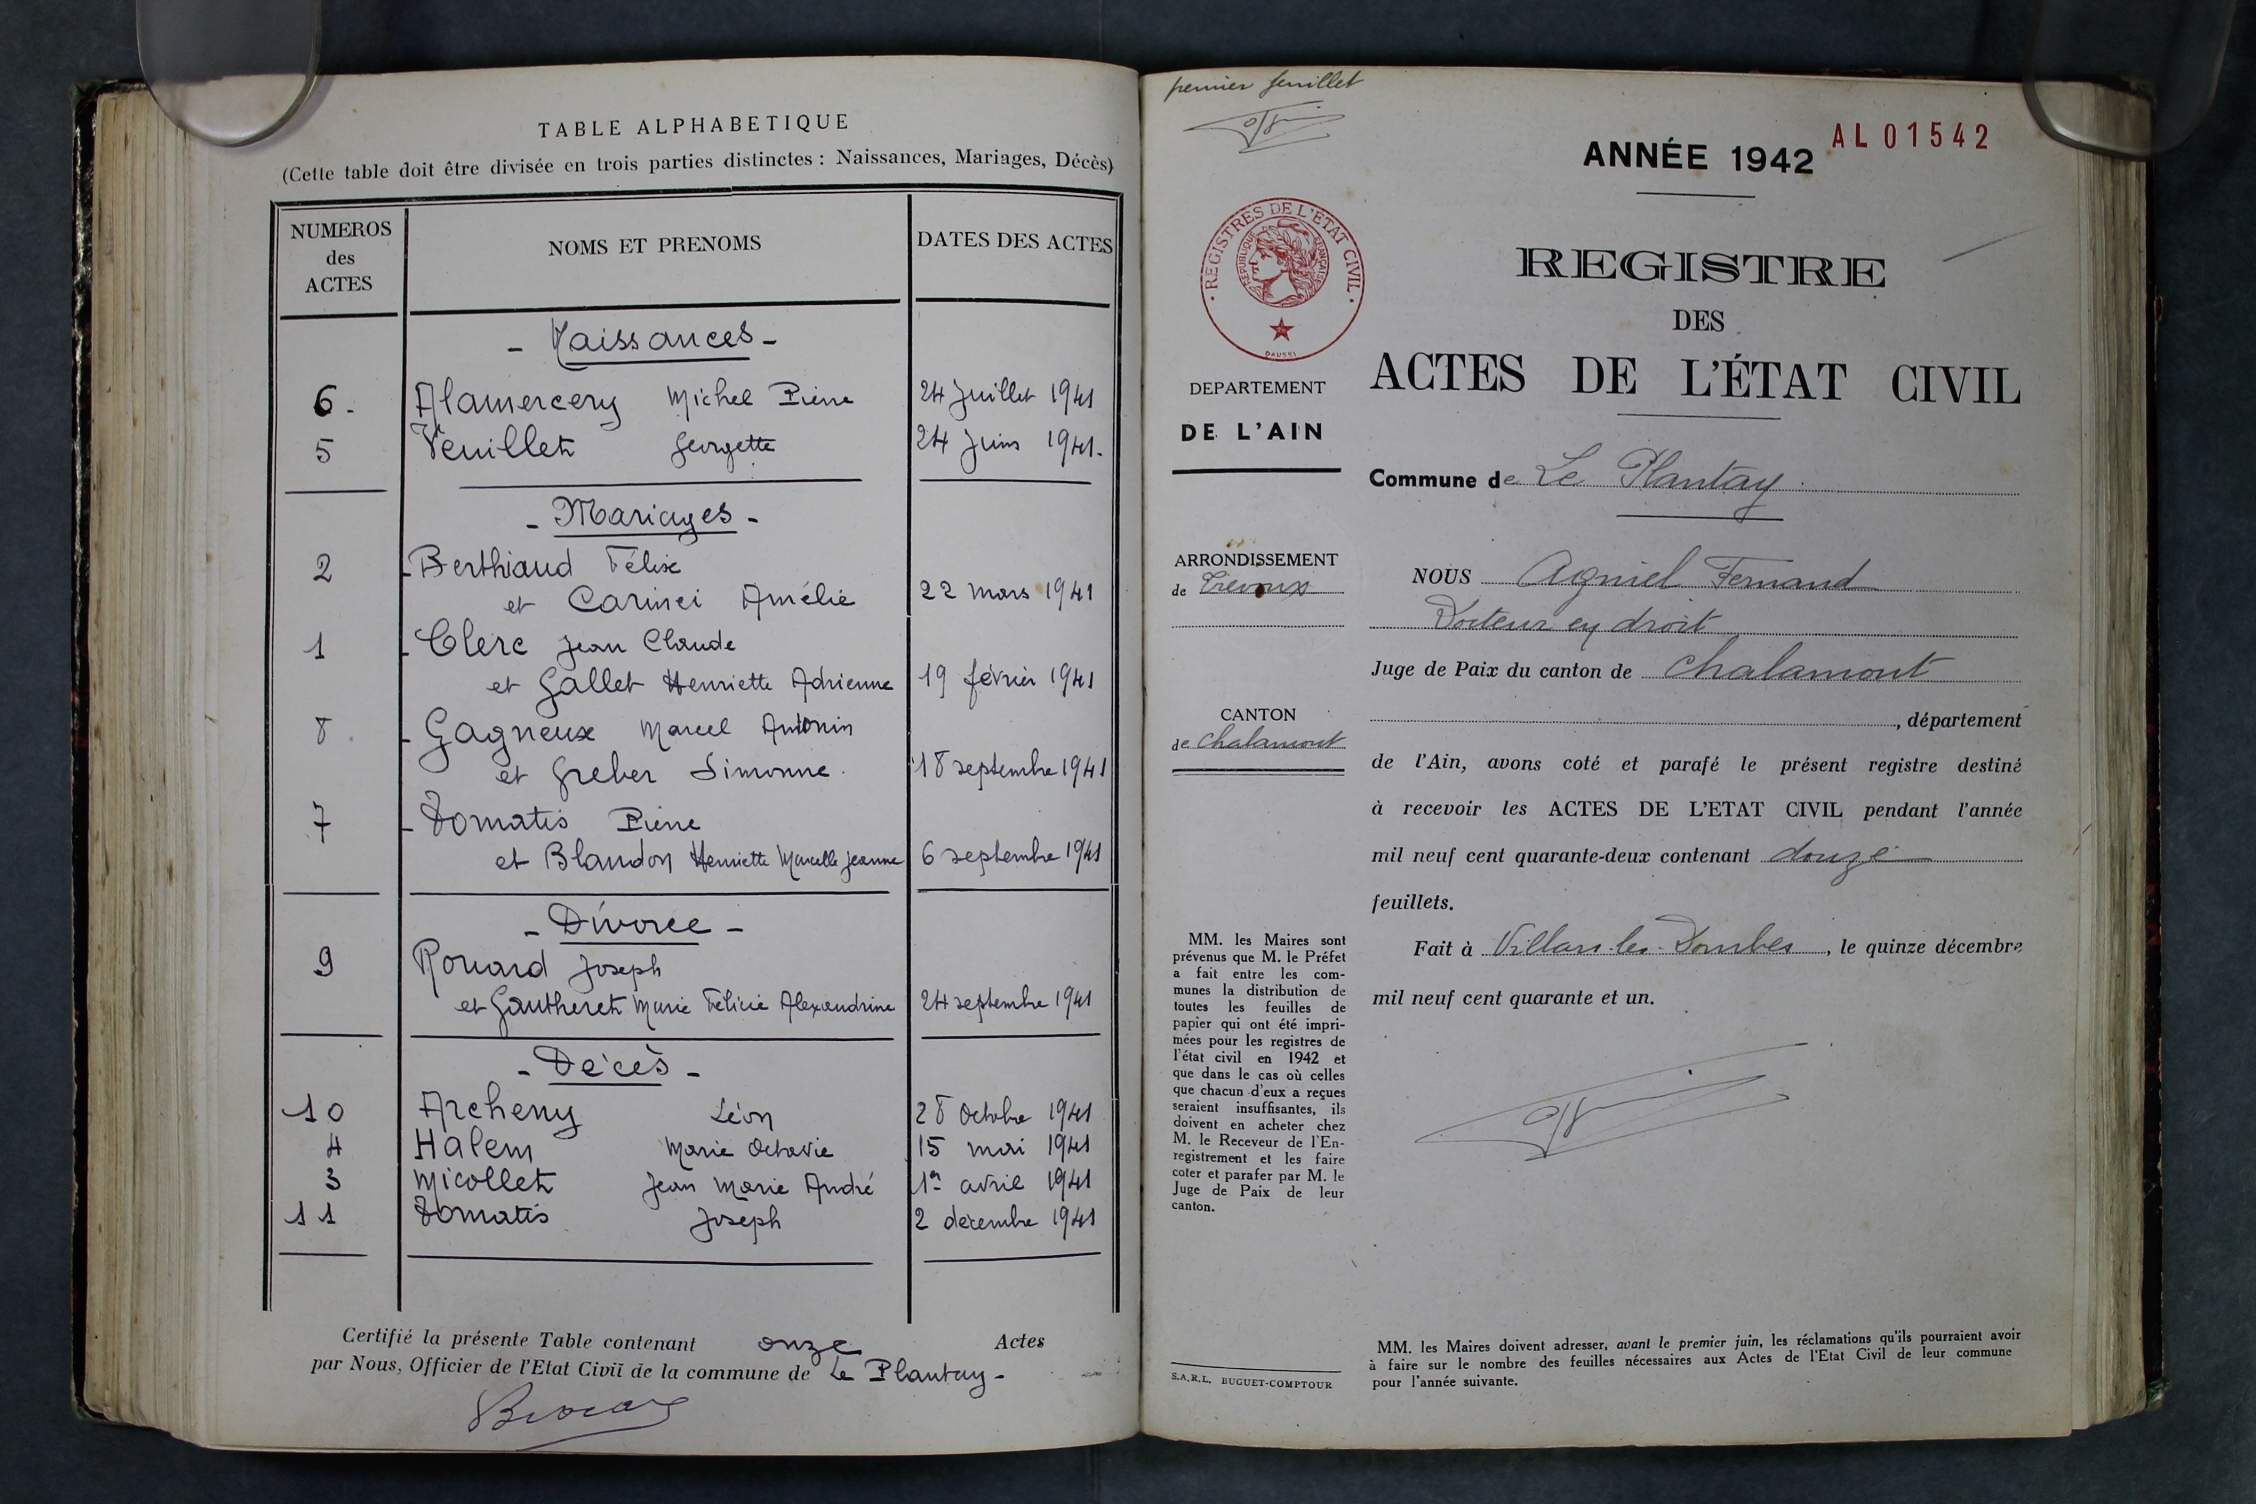 TABLE ALPHABETIQUE
(Cette table doit être divisée en trois parties distinctes : Naissances, Mariages, Décès)
NUMEROS des ACTES
NOMS ET PRENOMS
DATES DES ACTES
- Naissances -
6. Alamercery Michel Pierre 24 Juillet 1941
5 Veuillet Georgette 24 Juin 1941.
- Mariages -
2 - Berthiaud Félix
et Carinci Amélie 22 mars 1941
1 - Clerc Jean Claude
et Gallet Henriette Adrienne 19 février 1941
8. - Gagneux Marcel Antonin
et Greber Simonne. 18 septembre 1941
7 - Domatis Pierre
et Blandon Henriette Marcelle Jeanne 6 septembre 1941
- Divorce -
9 Rouard Joseph
et Gautheret Marie Félicie Alexandrine 24 septembre 1941
- Décès -
10 Archeny Léon 28 Octobre 1941
4 Halem Marie Octavie 15 mai 1941
3 Micollet Jean Marie André 1er avril 1941
11 Domatis Joseph 2 décembre 1941
Certifié la présente Table contenant onze Actes
par Nous, Officier de l'Etat Civil de la commune de Le Plantay -
premier feuillet
ANNÉE 1942
AL 01542
REGISTRES DE L'ETAT CIVIL
REPUBLIQUE FRANÇAISE
DAUSSI
REGISTRE
DES
ACTES DE L'ÉTAT CIVIL
DEPARTEMENT
DE L'AIN
Commune de Le Plantay.
ARRONDISSEMENT
de Trévoux
CANTON
de Chalamont
NOUS Agniel Fernand
Docteur en droit
Juge de Paix du canton de Chalamont
, département
de l'Ain, avons coté et parafé le présent registre destiné
à recevoir les ACTES DE L'ETAT CIVIL pendant l'année
mil neuf cent quarante-deux contenant douze
feuillets.
Fait à Villars-les-Dombes, le quinze décembre
mil neuf cent quarante et un.
MM. les Maires sont
prévenus que M. le Préfet
a fait entre les com-
munes la distribution de
toutes les feuilles de
papier qui ont été impri-
mées pour les registres de
l'état civil en 1942 et
que dans le cas où celles
que chacun d'eux a reçues
seraient insuffisantes, ils
doivent en acheter chez
M. le Receveur de l'En-
registrement et les faire
coter et parafer par M. le
Juge de Paix de leur
canton.
S.A.R.L. BUGUET-COMPTOUR
MM. les Maires doivent adresser, avant le premier juin, les réclamations qu'ils pourraient avoir
à faire sur le nombre des feuilles nécessaires aux Actes de l'Etat Civil de leur commune
pour l'année suivante.